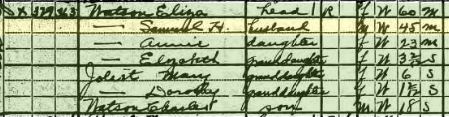 Watson Eliza head 1 R F W 60 M
— Samuel H. husband M W 45 M
— Annie daughter F W 23 M
— Elizabeth granddaughter F W 3 S
Mary granddaughter F W 6 S
— Dorothy granddaughter F W 1 S
Watson Charles son M W 18 S